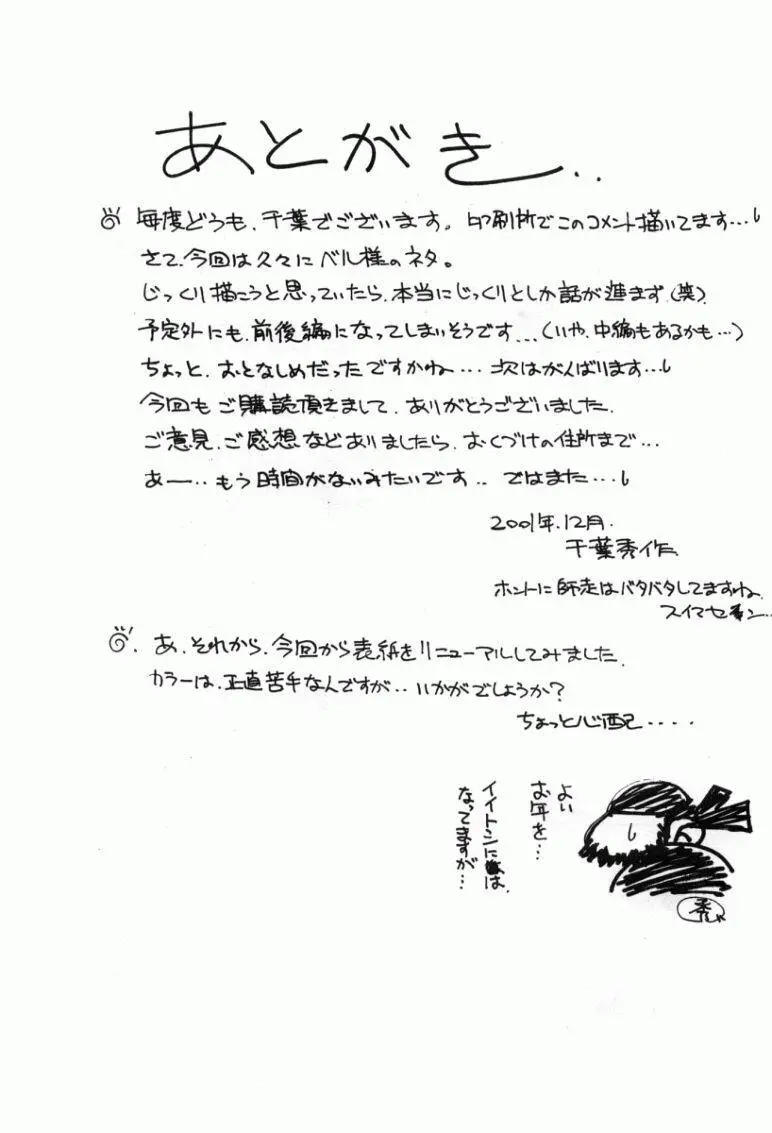 あとがき..
毎度どうも、千葉でございます。印刷所でこのコメント描いてます...
さて、今回は久々にベル様のネタ。
じっくり描こうと思っていたら、本当にじっくりとしか話が進まず(笑)、
予定外にも、前後編になってしまいそうです...(いや、中編もあるかも...)
ちょっと、おとなしめだったですかね...次はがんばります...
今回もご購読頂きまして、ありがとうございました。
ご意見、ご感想などありましたら、おくづけの住所まで...
あー..もう時間がないみたいです..ではまた...
2001年、12月、
千葉秀作
ホントに師走はバタバタしてますね、
スイマセン...
あ、それから、今回から表紙をリニューアルしてみました、
カラーは、正直苦手なんですが..いかがでしょうか?
ちょっと心配....
よい
お年を...
イイトシには、
なってますが...
秀